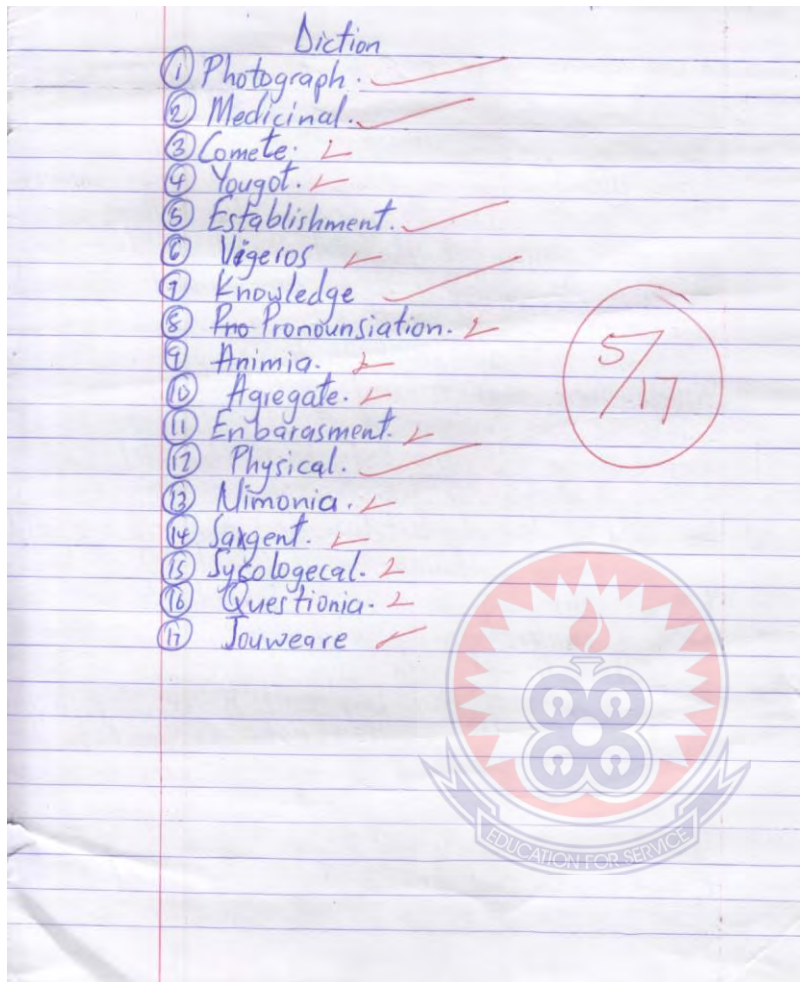 Diction
1 Photograph.
2 Medicinal.
3 Comete.
4 Yougot.
5 Establishment.
6 Vigeros
7 Knowledge
8 Pno Pronounsiation.
9 Animia.
10 Agregate.
11 Enbarasment.
12 Physical.
13 Nimonia.
14 Sargent.
15 Sycologecal.
16 Questionia.
17 Jouweare
5/17
EDUCATION FOR SERVICE